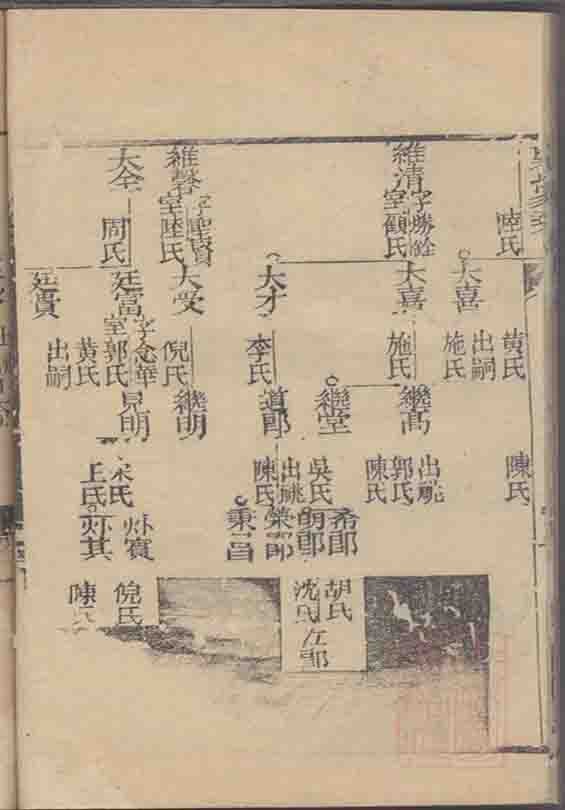 陸氏
維清
字勝銓
室顧氏
維馨
字聖賢
室陸氏
大全
周氏
大喜
黃氏
出嗣
施氏
大喜
施氏
大才
李氏
大受
倪氏
廷富
字念華
室郭氏
廷貴
黃氏
出嗣
陳氏
繼高
出祧
郭氏
陳氏
繼堂
吳氏
出祧
道郎
陳氏
繼明
見明
宋氏
希郎
胡氏
朗郎
沈氏
榮郎
秉昌
倪氏
陳氏